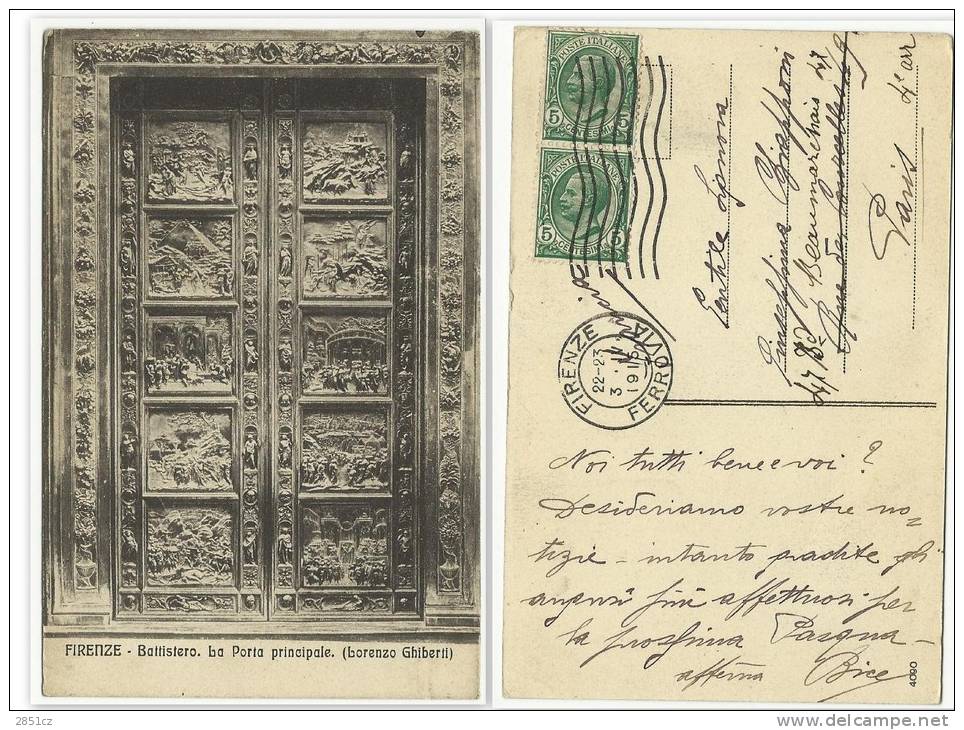 FIRENZE - Battistero. La Porta principale. (Lorenzo Ghiberti)
2851cz
POSTE ITALIANE
5 5
CENTESIMI
POSTE ITALIANE
5 5
CENTESIMI
FIRENZE
22-23
3 · IV
191
FERROVIA
Gentile Signora
Giuseppina
47 Bd Beaumarchais 47
Rue de
Paris 4e arr
Noi tutti bene e voi?
Desideriamo vostre no=
tizie - intanto gradite gli
auguri più affettuosi per
la prossima Pasqua -
affema Bice
4090
www.delcampe.net